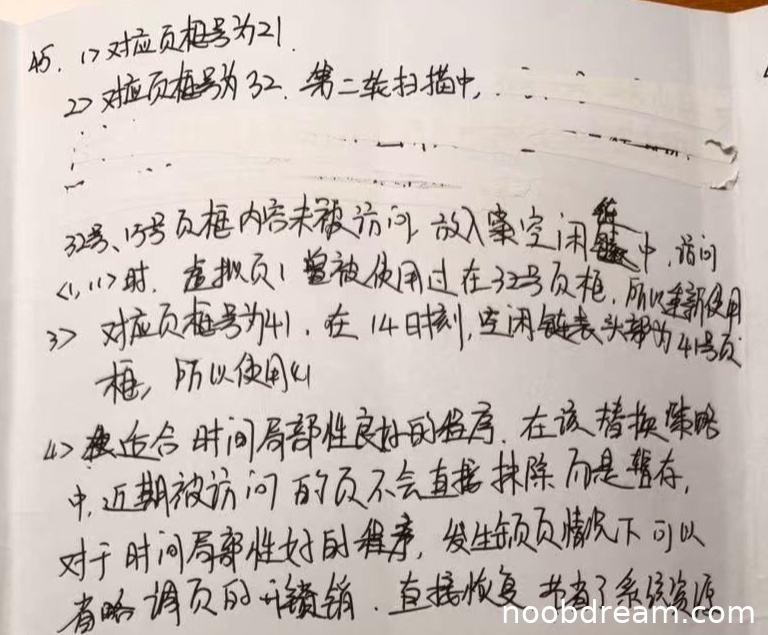 45. 1> 对应页框号为21.
2> 对应页框号为32. 第二轮扫描中,
32号、15号页框内容未被访问, 放入空闲链表中, 访问
<1,11>时. 虚拟页1曾被使用过在32号页框, 所以重新使用
3> 对应页框号为41. 在14日时刻, 空闲链表头部为41号页
框, 所以使用41
4> 适合时间局部性良好的程序. 在该替换策略
中, 近期被访问的页不会直接抹除而是暂存,
对于时间局部性好的程序, 发生缺页情况下可以
省略调页的开销. 直接恢复 节省了系统资源
noobdream.com